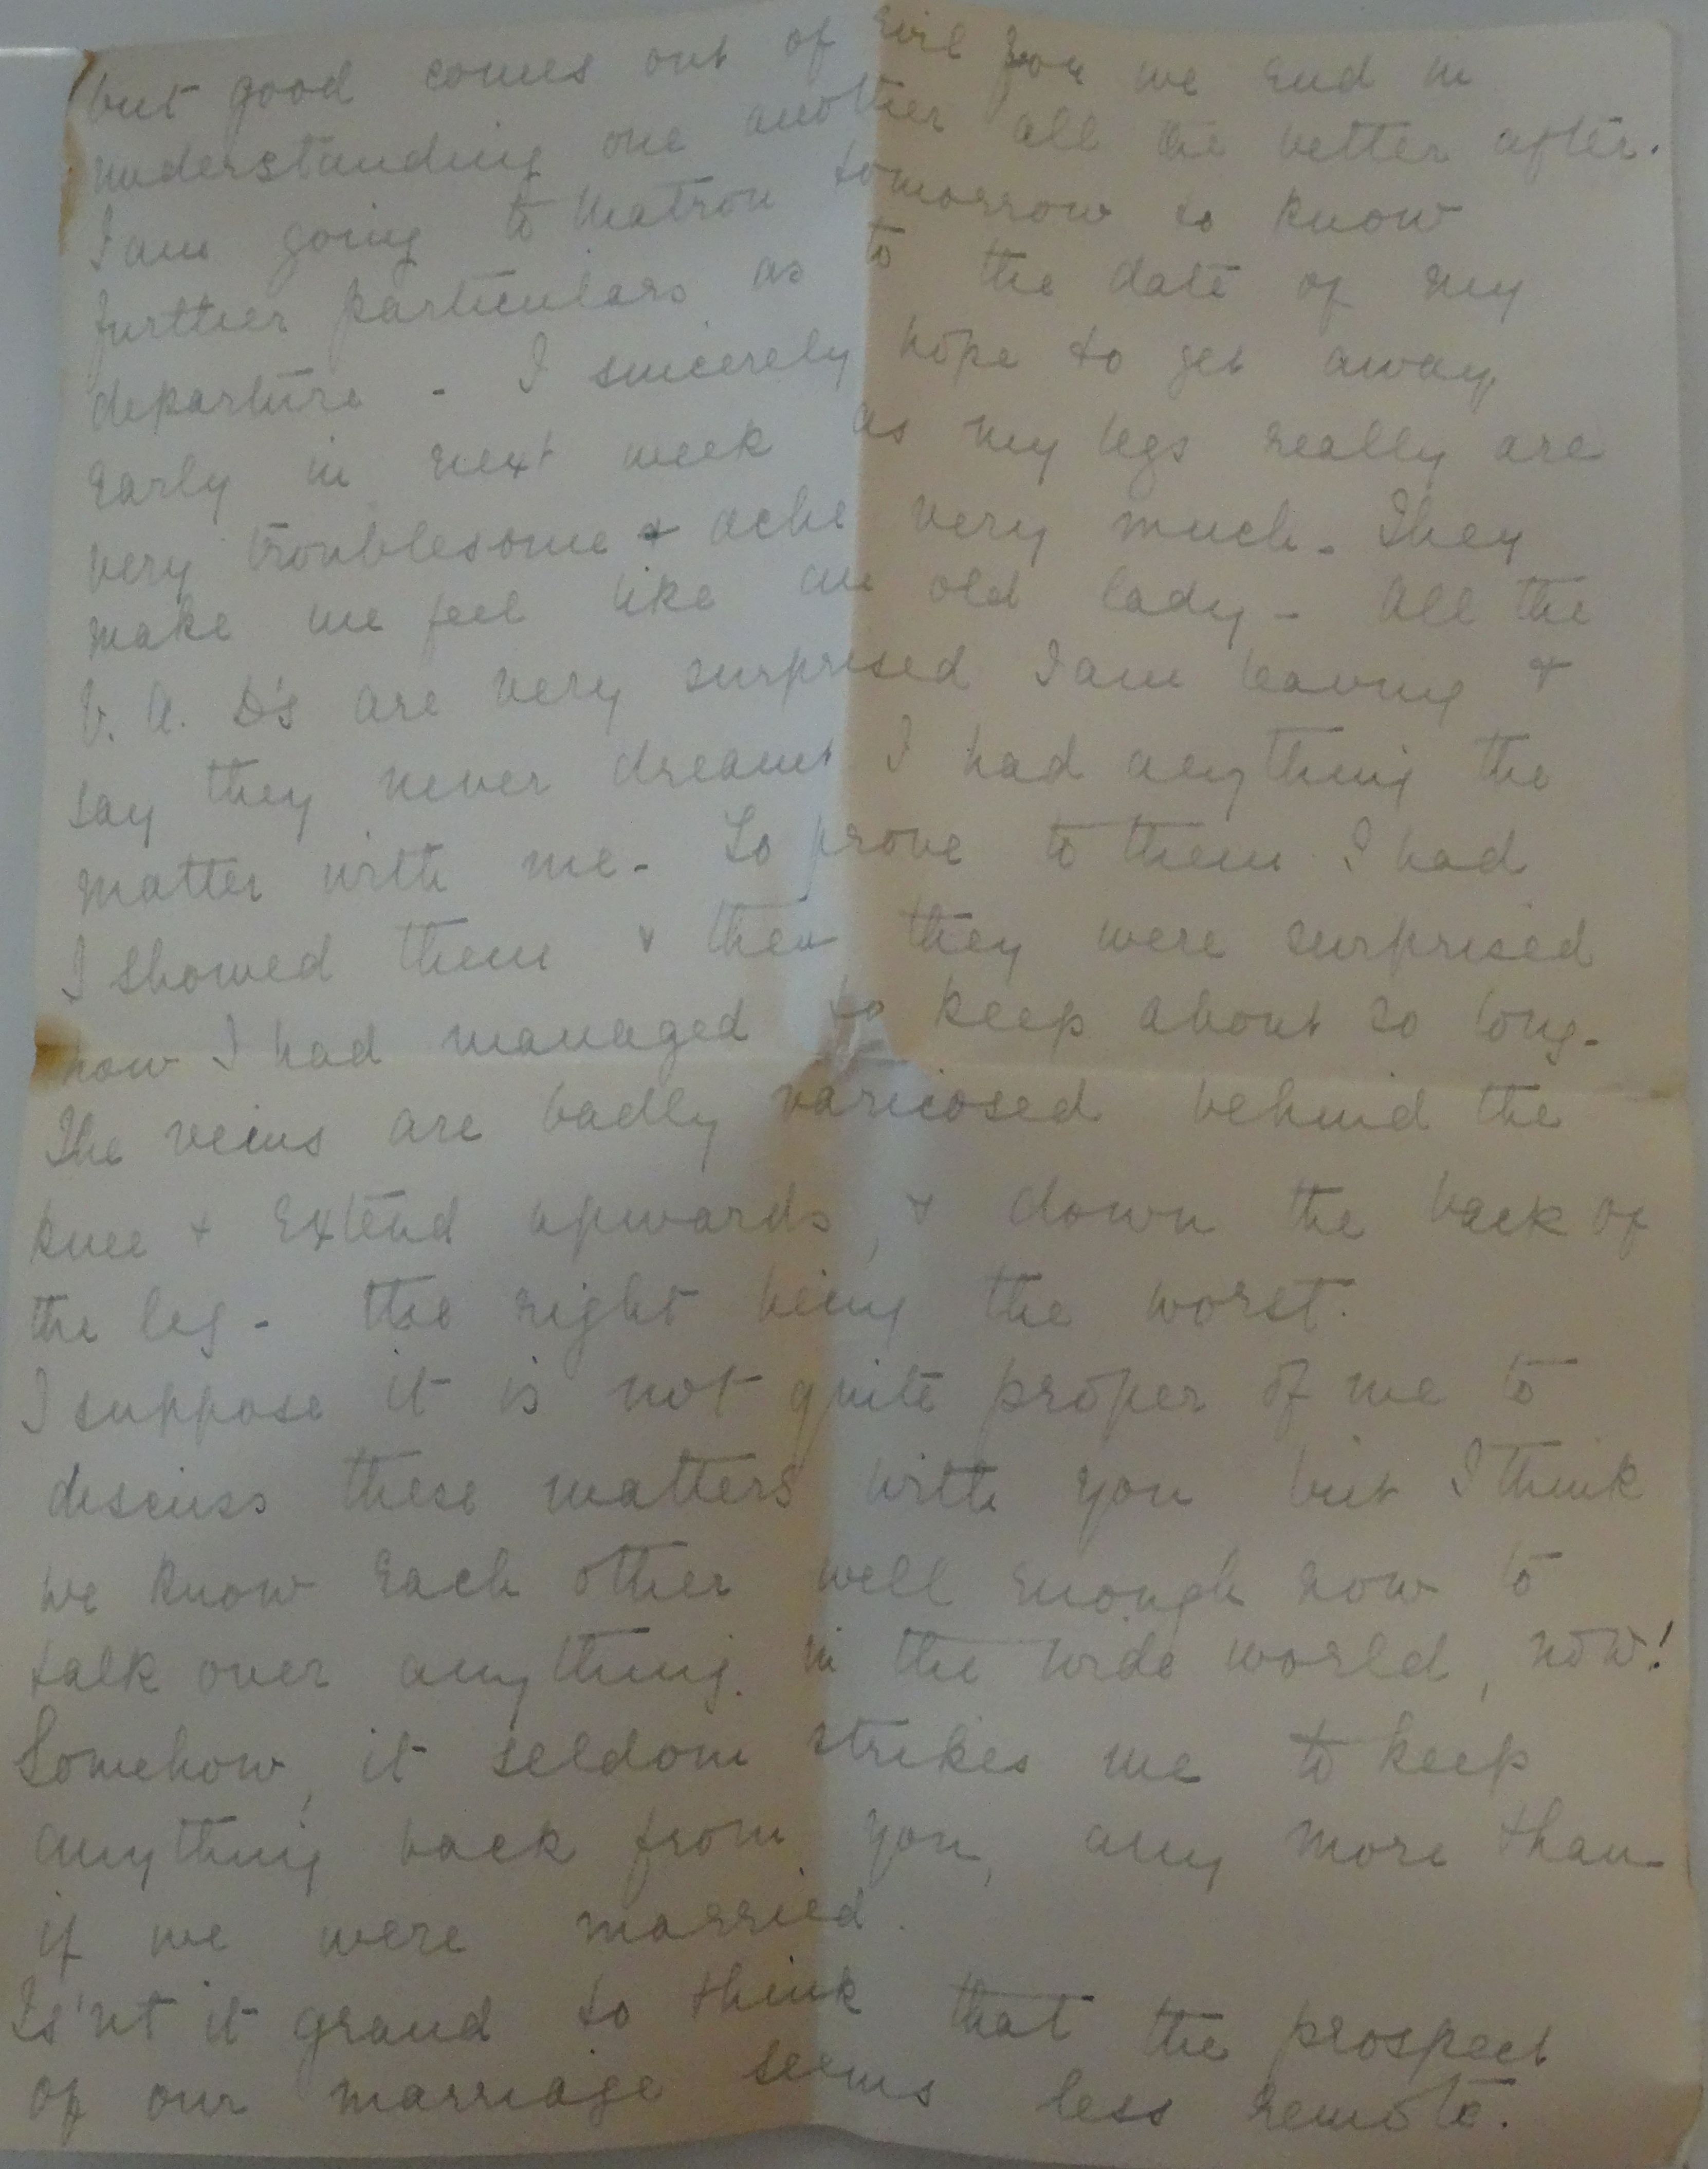 but good comes out of evil for we end in
understanding one another all the better after.
I am going to Matron tomorrow to know
further particulars as to the date of my
departure - I sincerely hope to get away
early in next week as my legs really are
very troublesome & ache very much. They
make me feel like an old lady - All the
V. A. D's are very surprised I am leaving &
say they never dreamt I had anything the
matter with me - So prove to them I had
I showed them & then they were surprised
how I had managed to keep about so long -
The veins are badly varicosed behind the
knee & extend upwards, & down the back of
the leg - the right being the worst.
I suppose it is not quite proper of me to
discuss these matters with you but I think
we know each other well enough now to
talk over anything in the wide world, now!
Somehow, it seldom strikes me to keep
anything back from you, any more than
if we were married.
Is'nt it grand to think that the prospect
of our marriage seems less remote.